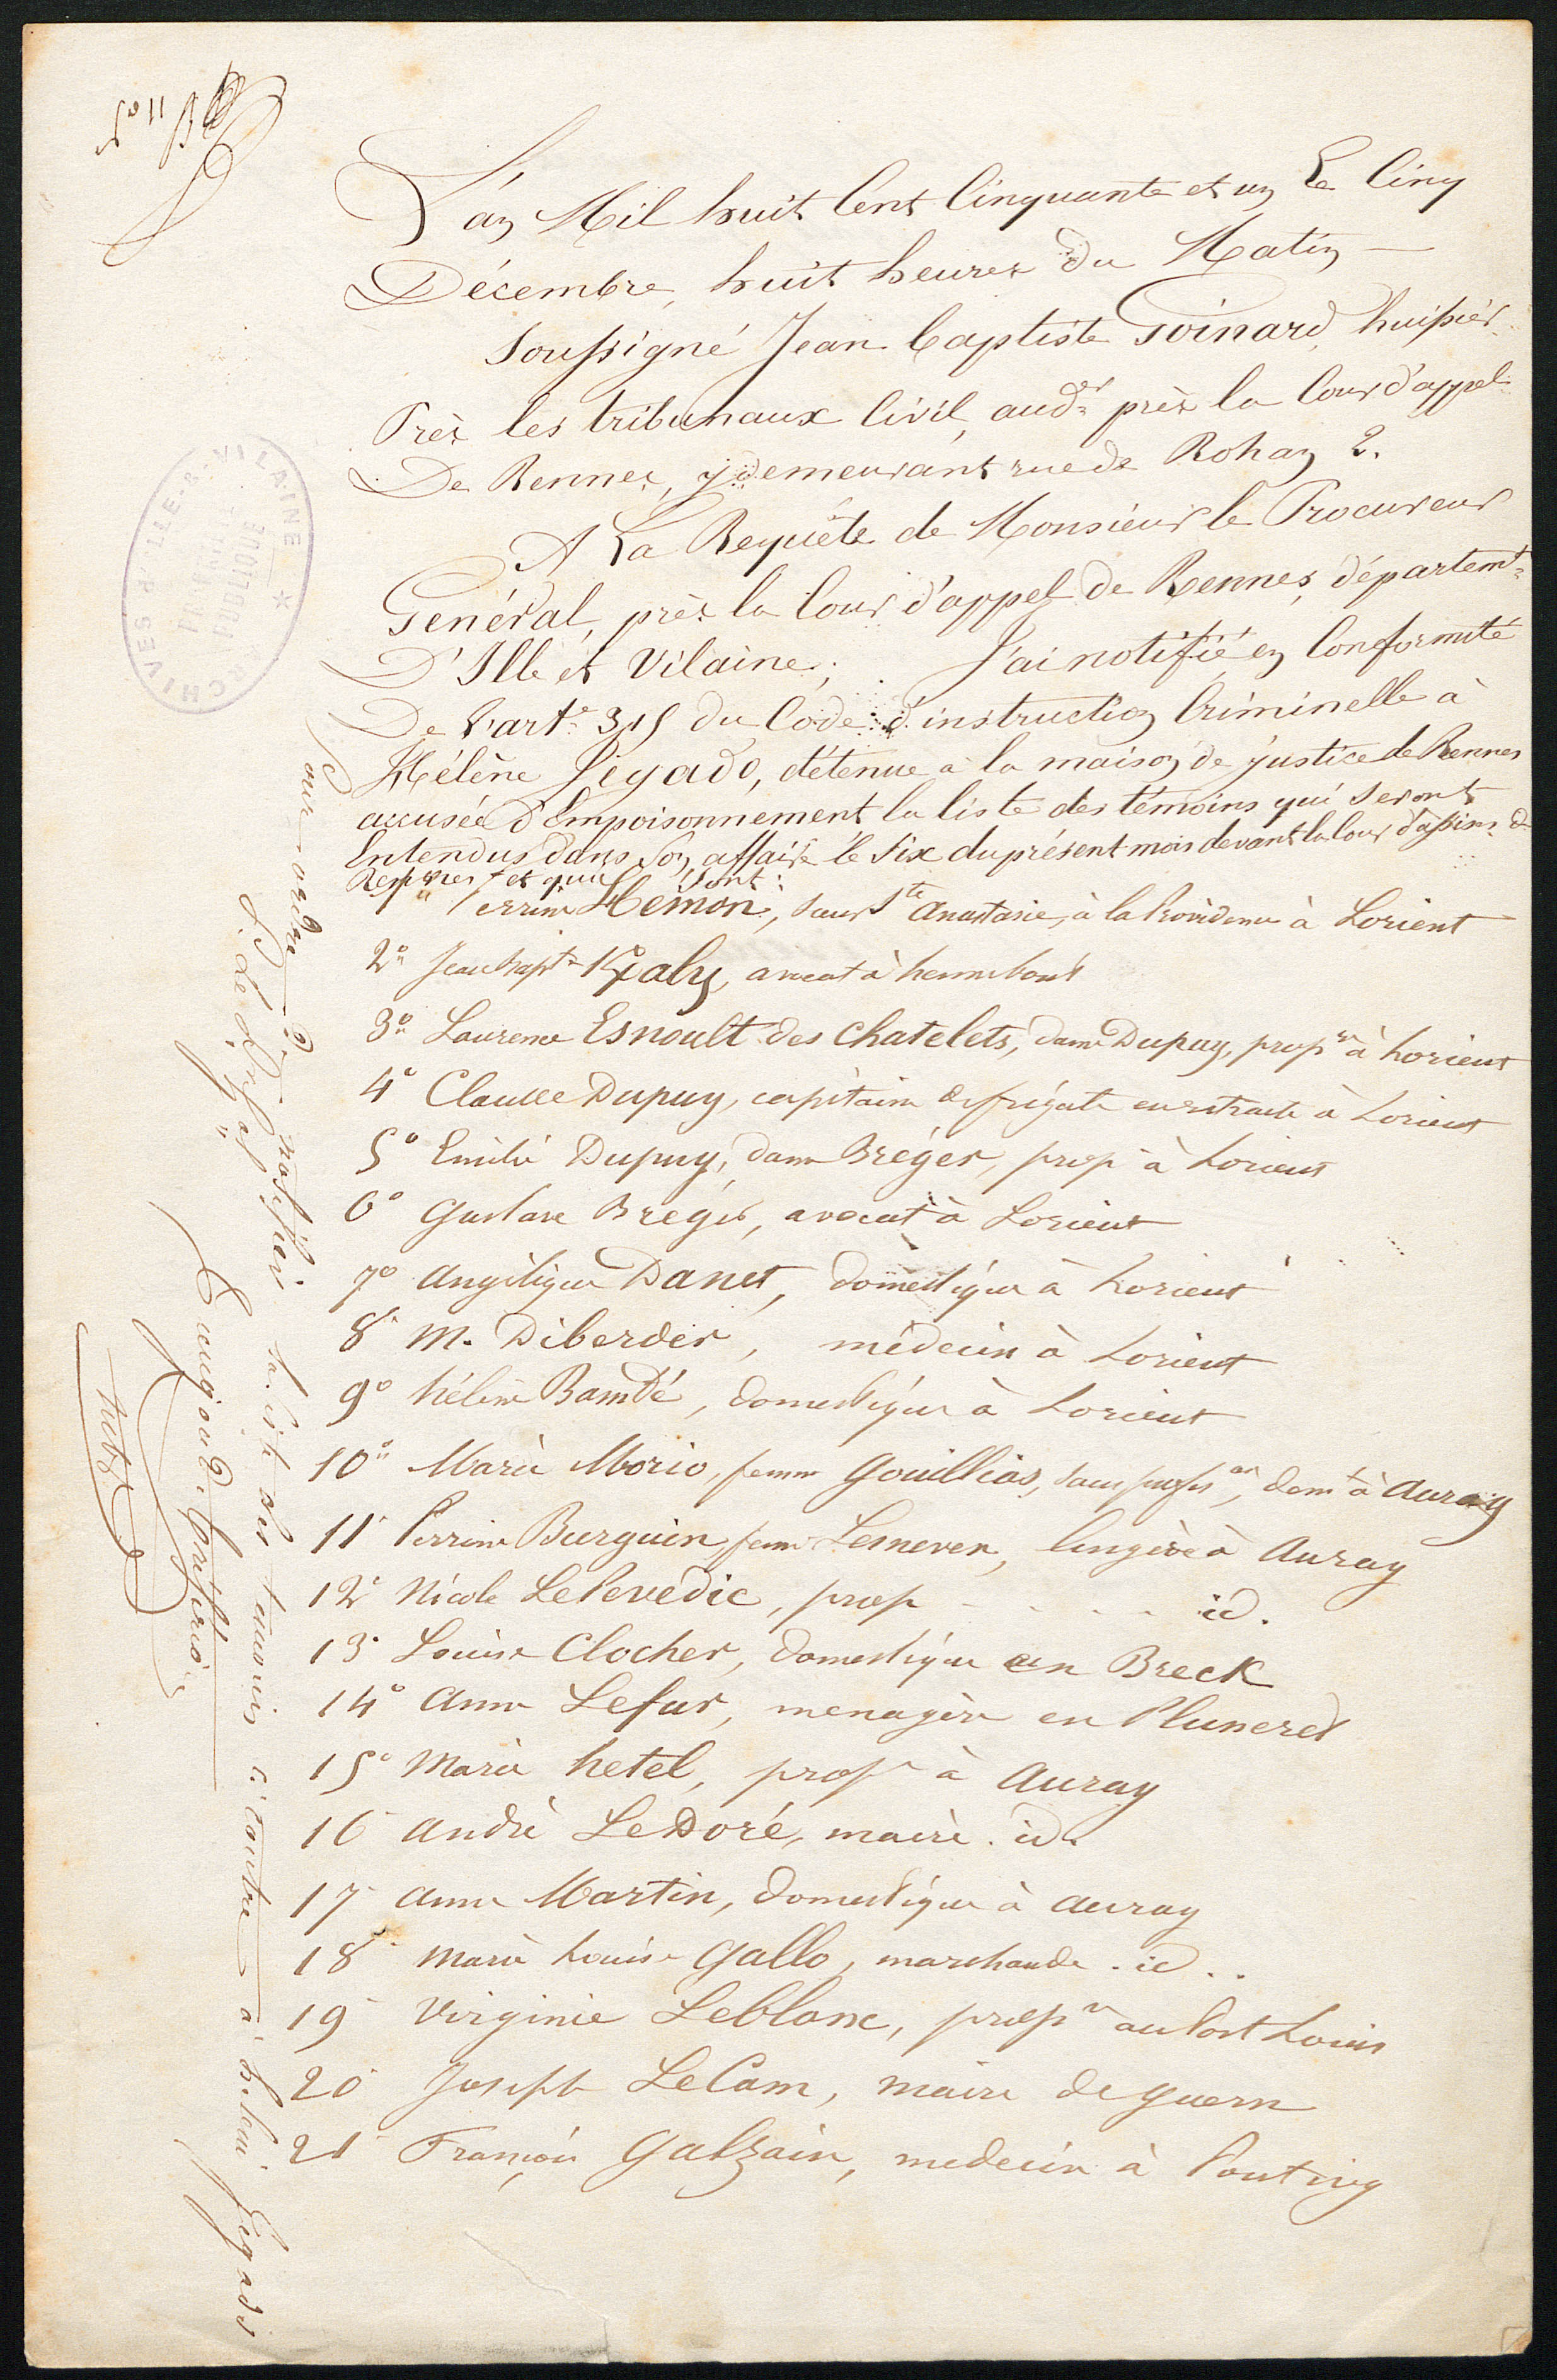 L'an Mil huit Cent Cinquante et un Le Cinq
Décembre, huit heures du Matin
Soussigné Jean baptiste Goinard, huissier
Près les tribunaux Civil, audr près la Cour d'appel
De Rennes, y demeurant rue de Rohan 2.
A La Requête de Monsieur le Procureur
Général, près la Cour d'appel de Rennes, départemt
D'Ille et Vilaine; J'ai notifié en Conformité
De l'arte 315 du Code d'instruction Criminelle à
Hélène Jegado, détenue à la maison de justice de Rennes
accusée d'Empoisonnement la liste des témoins qui seront
Entendus dans son affaire le six du présent mois devant la Cour d'assises de
Rennes et qui sont:
1° Perrine Hémon, sœur Ste Anastasie, à la Providence à Lorient
2° Jean bapte Kgaly, avocat à hennebont
3° Laurence Esnoult des Chatelets, dame Dupuy, propre à Lorient
4° Claude Dupuy, capitaine de frégate en retraite à Lorient
5° Emilie Dupuy, dame Bréger, prop. à Lorient
6° Gustave Bréger, avocat à Lorient
7° Angélique Danet, domestique à Lorient
8° M. Diberder, médecin à Lorient
9° hélène Bamdé, domestique à Lorient
10° Marie Morio, femme Gouillias, sans profon, demt à Auray
11° Perrine Burguin, feme Lesneven, lingère à Auray
12° Nicole LePevedic, prop . . . . id.
13° Louise Clocher, domestique en Breck
14° Anne Lefur, menagère en Pluneret
15° Marie hetel, propre à Auray
16 André LeDoré, maire. id.
17 Anne Martin, domestique à Auray
18 Marie Louise Gallo, marchande. id..
19 Virginie Leblanc, propre au Port Louis
20 Joseph LeCam, maire de Guern
21 François Galzain, medecin à Pontivy
Pour ordre de notifier la liste des temoins à Contre à hélène Jegado
ARCHIVES D'ILLE-&-VILAINE
PROPRIÉTÉ
PUBLIQUE